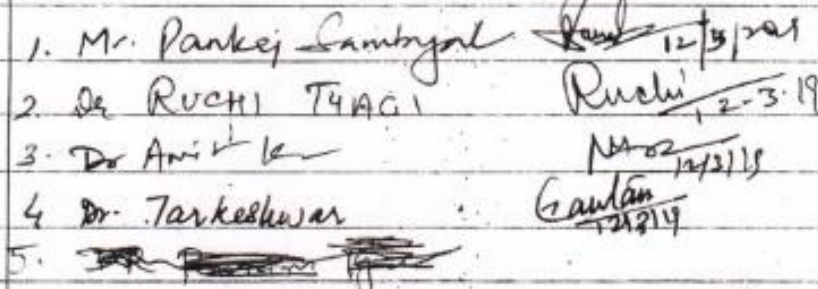 1. Mr. Pankej Sambyal 12/3/2019
2. Dr RUCHI TYAGI Ruchi 12-3-19
3. Dr Anil K 12/3/19
4 Dr. Tarkeshwar Gautam 12/3/19
5.